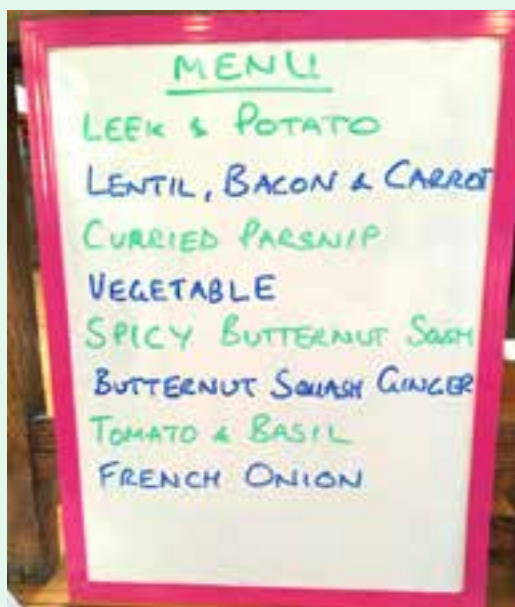 MENU
LEEK & POTATO
LENTIL, BACON & CARROT
CURRIED PARSNIP
VEGETABLE
SPICY BUTTERNUT SQUASH
BUTTERNUT SQUASH GINGER
TOMATO & BASIL
FRENCH ONION